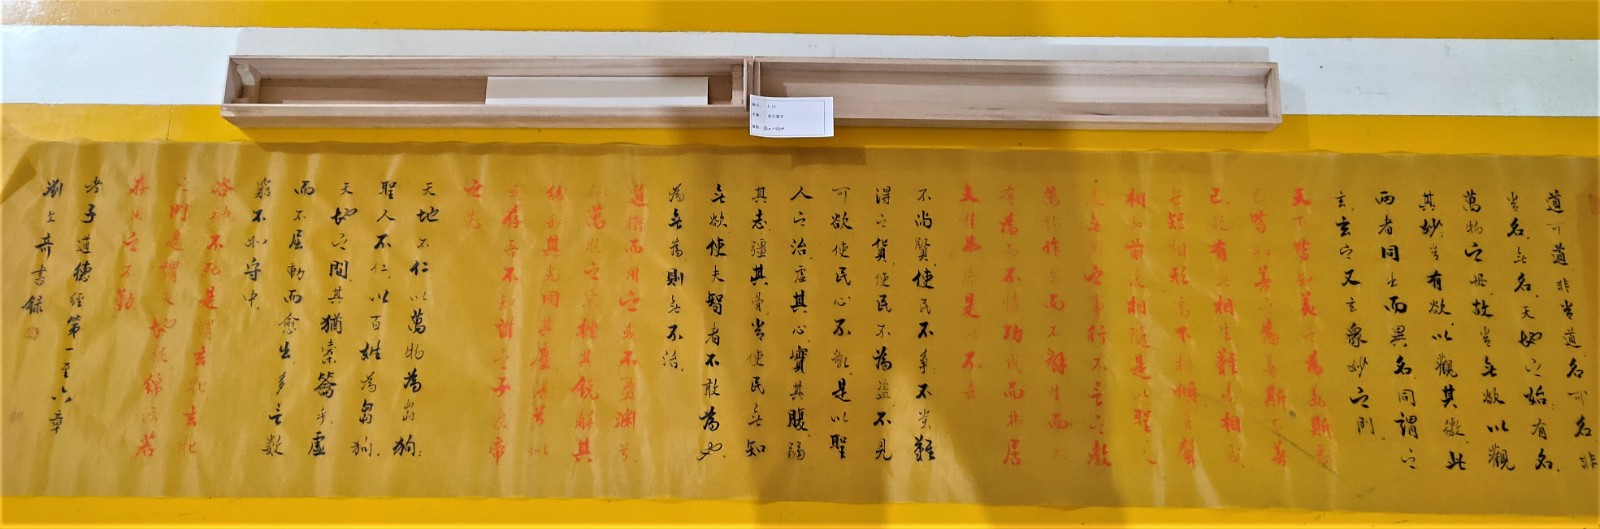 道可道非常道名可名非
常名無名天地之始有名
萬物之母故常無欲以觀
其妙常有欲以觀其徼此
兩者同出而異名同謂之
玄玄之又玄衆妙之門
天下皆知美之為美斯惡
已皆知善之為善斯不善
已故有無相生難易相成
長短相形高下相傾音聲
相和前後相隨是以聖人
處無為之事行不言之教
萬物作焉而不辭生而不
有為而不恃功成而弗居
夫唯弗居是以不去
不尚賢使民不爭不貴難
得之貨使民不為盜不見
可欲使民心不亂是以聖
人之治虛其心實其腹弱
其志彊其骨常使民無知
無欲使夫智者不敢為也
為無為則無不治
道沖而用之或不盈淵兮
似萬物之宗挫其銳解其
紛和其光同其塵湛兮似
或存吾不知誰之子象帝
之先
天地不仁以萬物為芻狗
聖人不仁以百姓為芻狗
天地之間其猶橐籥乎虛
而不屈動而愈出多言數
窮不如守中
谷神不死是謂玄牝玄牝
之門是謂天地根綿綿若
存用之不勤
老子道德經第一至六章
劉文奇書録